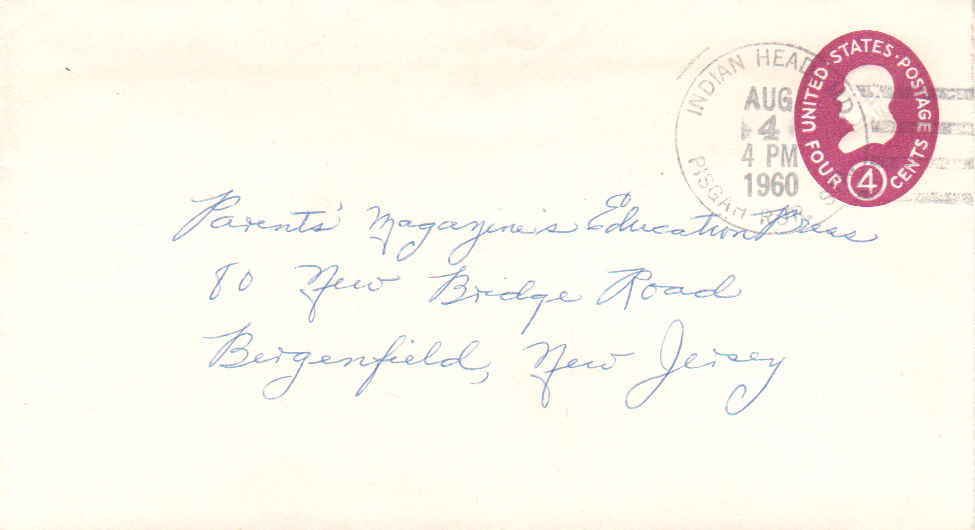 INDIAN HEAD, MD.
AUG
4
4 PM
1960
PISGAH
UNITED STATES POSTAGE
4
FOUR CENTS
Parents' Magazine's Education Press
80 New Bridge Road
Bergenfield, New Jersey